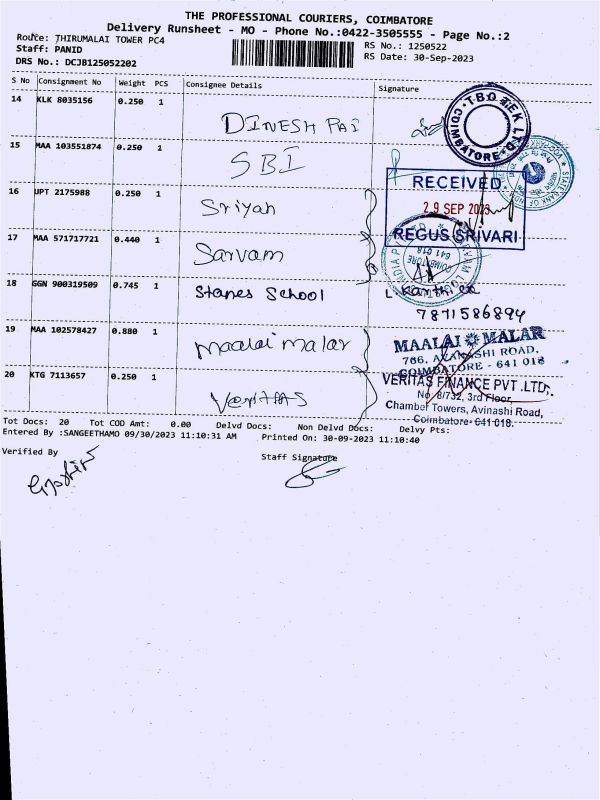 THE PROFESSIONAL COURIERS, COIMBATORE
Delivery Runsheet - MO - Phone No.:0422-3505555 - Page No.:2
Route: THIRUMALAI TOWER PC4
RS No.: 1250522
Staff: PANID
RS Date: 30-Sep-2023
DRS No.: DCJB125052202
S No Consignment No Weight PCS Consignee Details Signature
14 KLK 8035156 0.250 1 DINESH PAI
T.B.O TEK LTD. COIMBATORE
15 MAA 103551874 0.250 1 SBI
STATE BANK OF INDIA
RECEIVED
29 SEP 2023
REGUS SRIVARI
16 UPT 2175988 0.250 1 Sriyah
17 MAA 571717721 0.440 1 Sarvam
COIMBATORE 641 018
18 GGN 900319509 0.745 1 Stanes School
7871586894
19 MAA 102578427 0.880 1 Maalai malar
MAALAI MALAR
766, AVANASHI ROAD,
COIMBATORE - 641 018
20 KTG 7113657 0.250 1 Veritas
VERITAS FINANCE PVT .LTD.
No: 8/732, 3rd Floor,
Chamber Towers, Avinashi Road,
Coimbatore- 641 018.
Tot Docs: 20 Tot COD Amt: 0.00 Delvd Docs: Non Delvd Docs: Delvy Pts:
Entered By :SANGEETHAMO 09/30/2023 11:10:31 AM Printed On: 30-09-2023 11:10:40
Verified By
Staff Signature